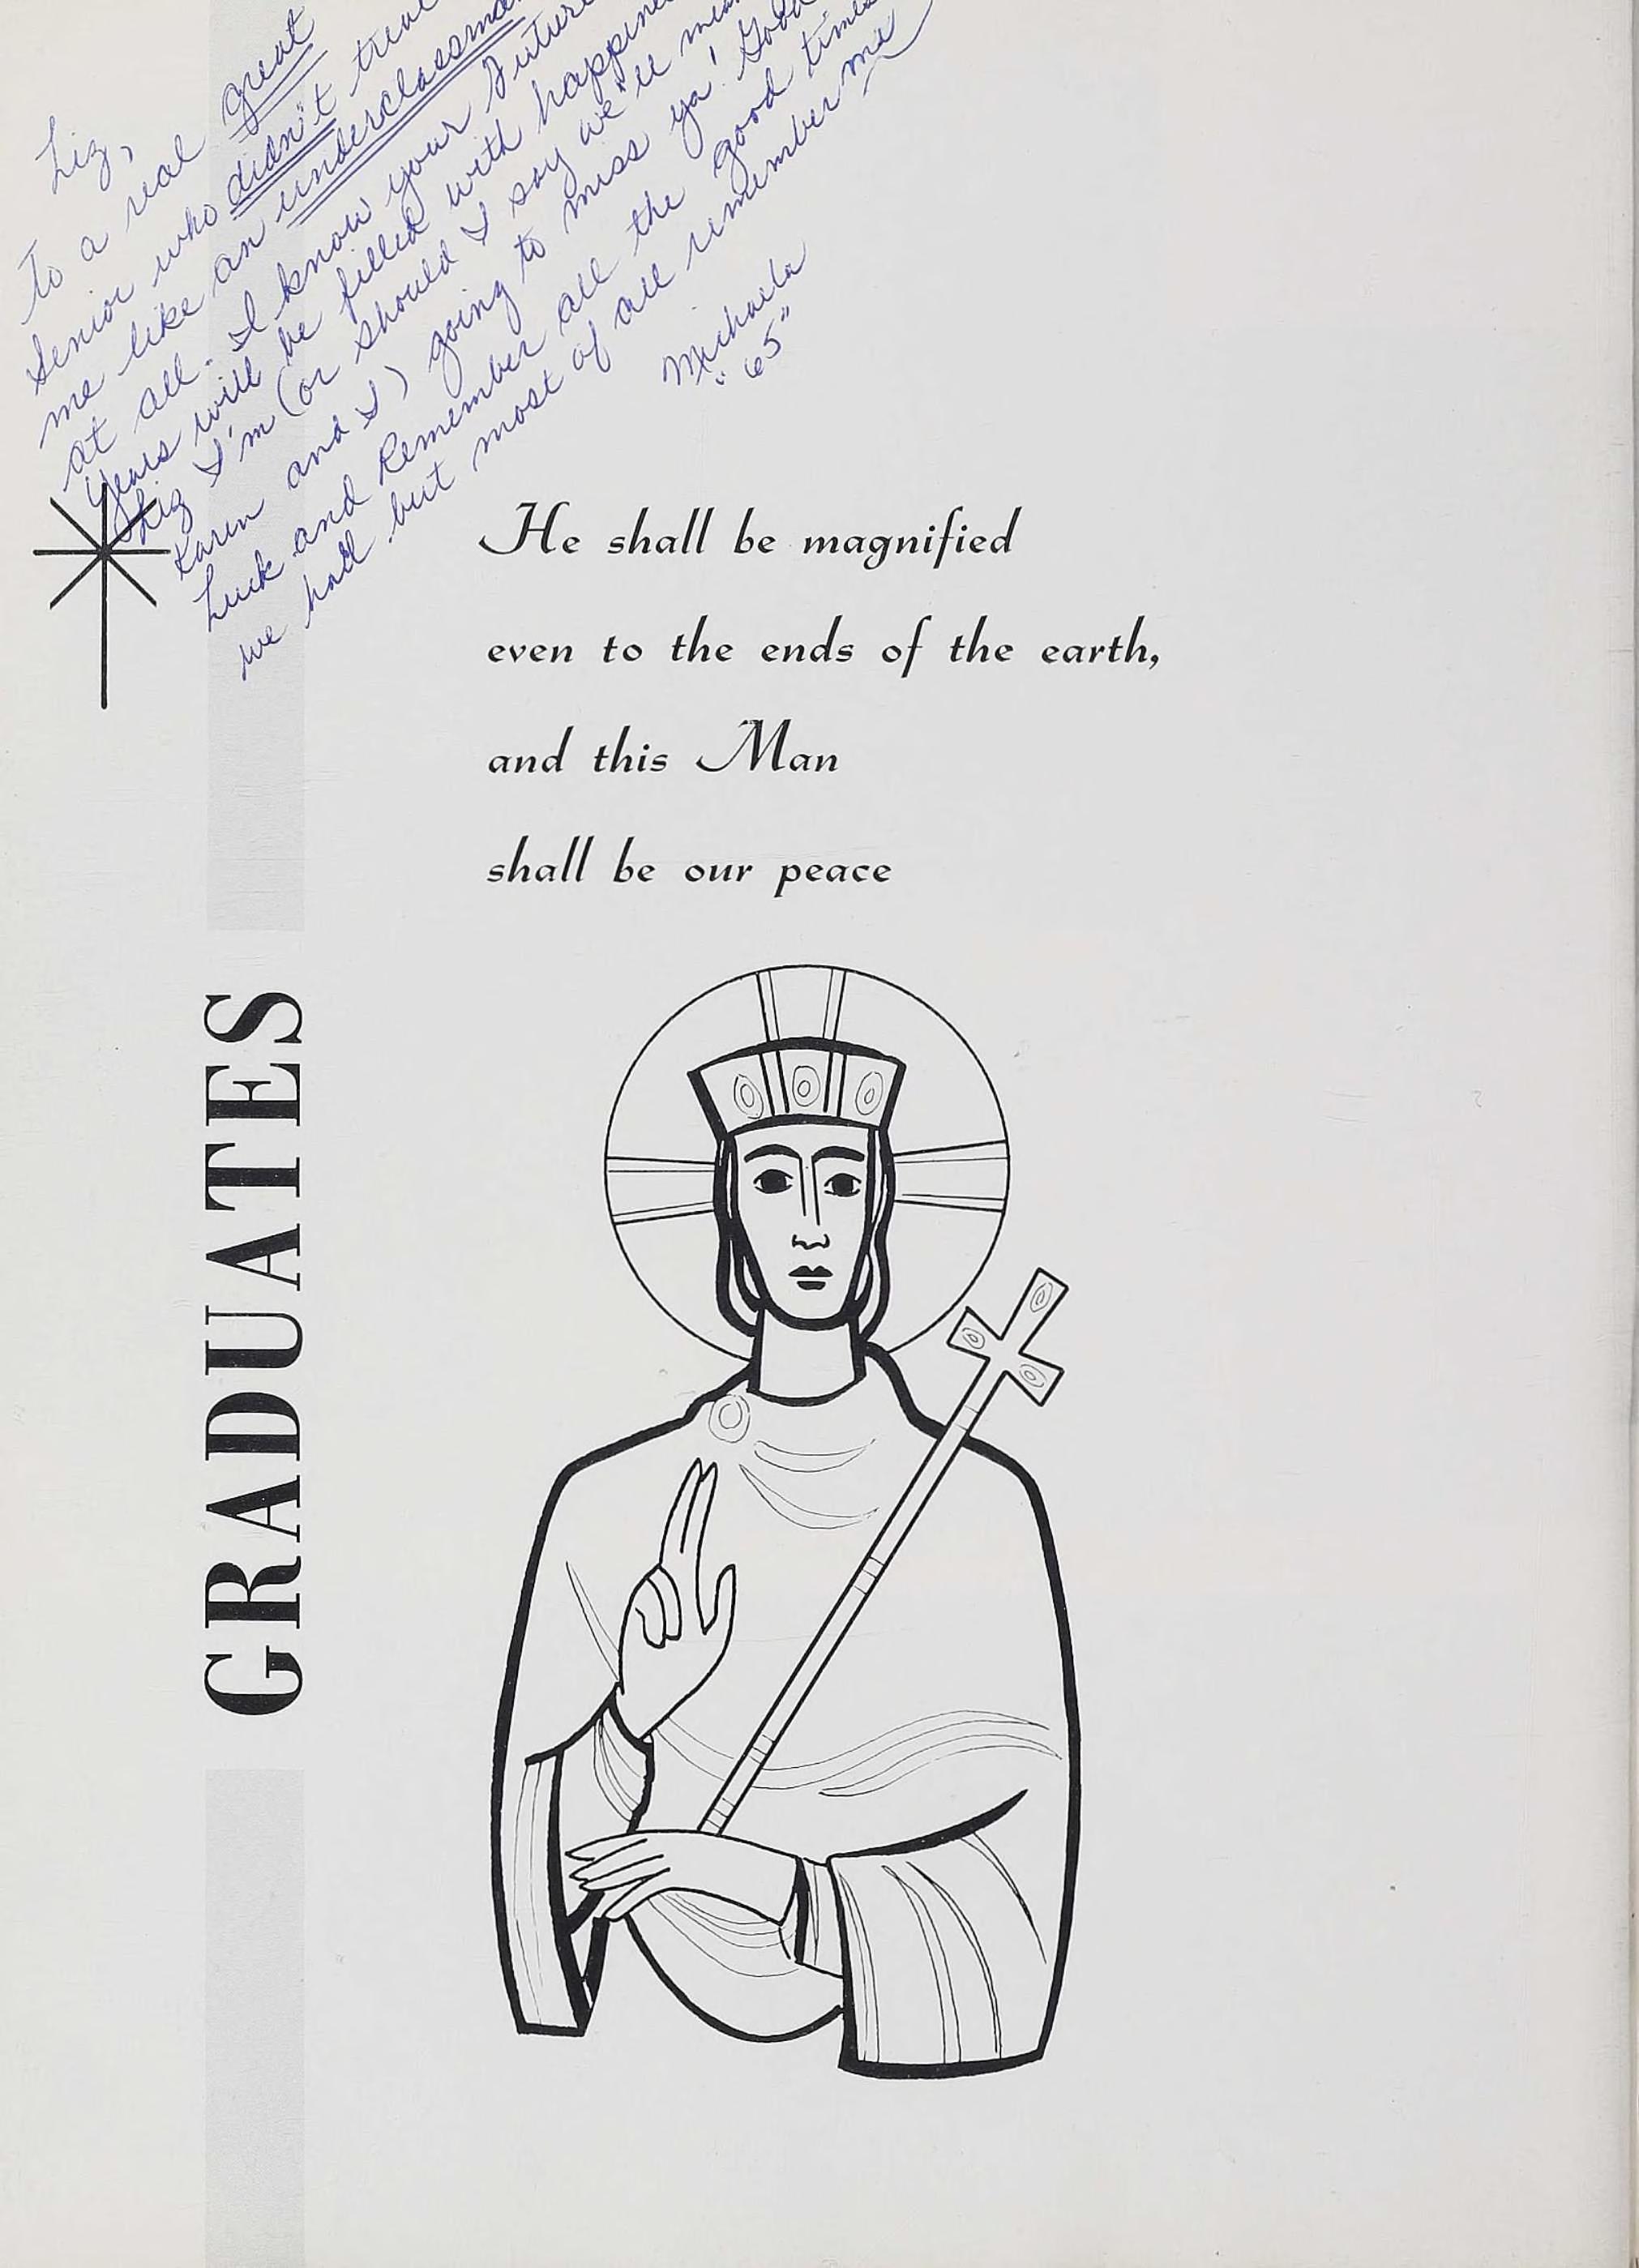 Liz,
To a real great
Senior who didn't treat
me like an underclassman
at all. I know your future
years will be filled with happiness
Liz I'm (or should I say we'll mean
Karen and I) going to miss ya! Good
Luck and Remember all the good times
we hall but most of all remember me
Michaela
"65"
He shall be magnified
even to the ends of the earth,
and this Man
shall be our peace
GRADUATES